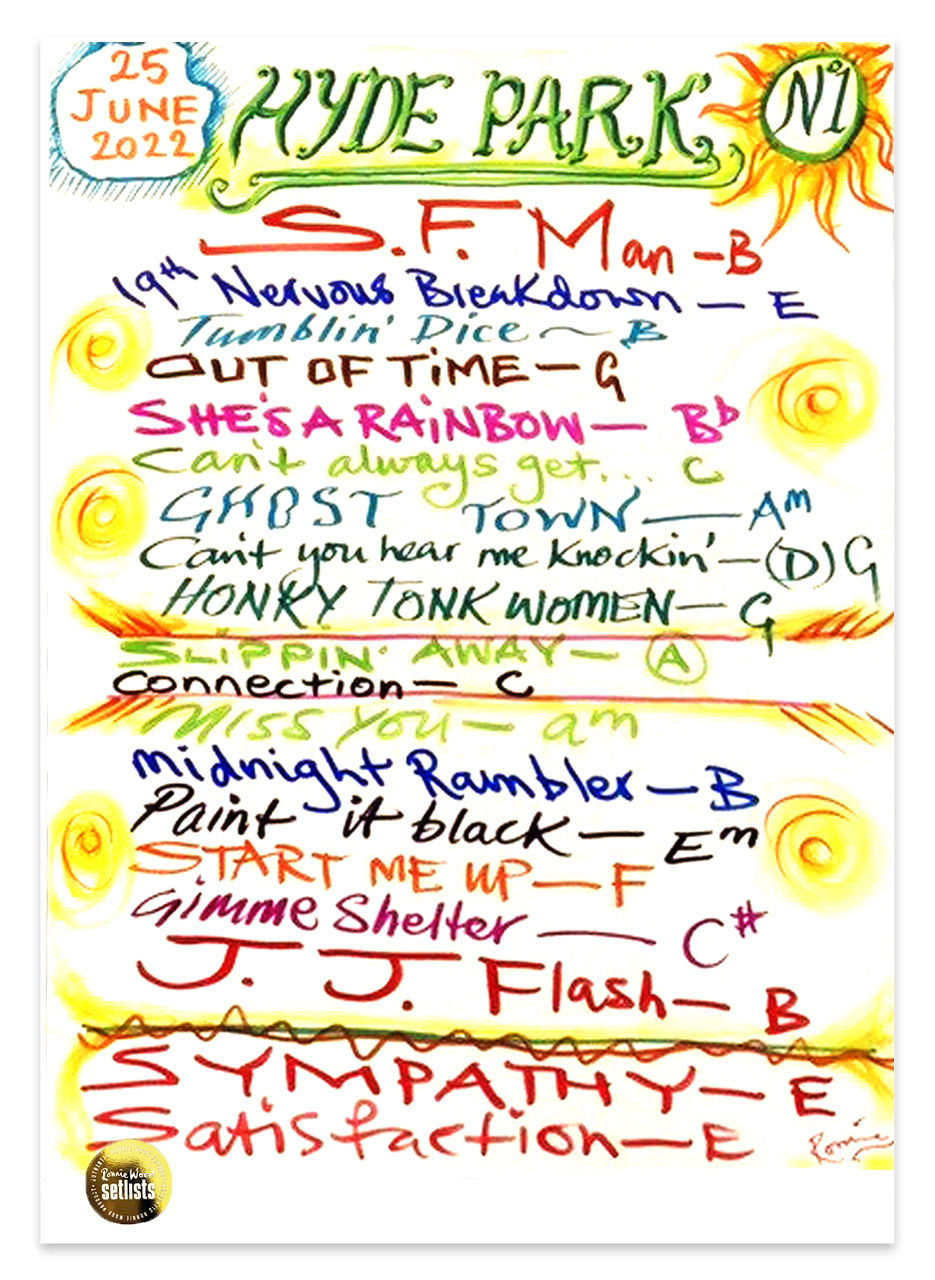 25
JUNE
2022
HYDE PARK
Nº1
S.F. Man - B
19th Nervous Breakdown - E
Tumblin' Dice ~ B
OUT OF TiME - G
SHE'S A RAiNBOW - Bb
Can't always get... C
GHOST TOWN - Am
Can't you hear me knockin' - (D) G
HONKY TONK WOMEN - G
SLiPPiN' AWAY - A
Connection - C
Miss You - am
Midnight Rambler - B
Paint it black - Em
START ME UP - F
Gimme Shelter - C#
J. J. Flash - B
SYMPATHY - E
Satisfaction - E
Ronnie
Ronnie Wood
setlists